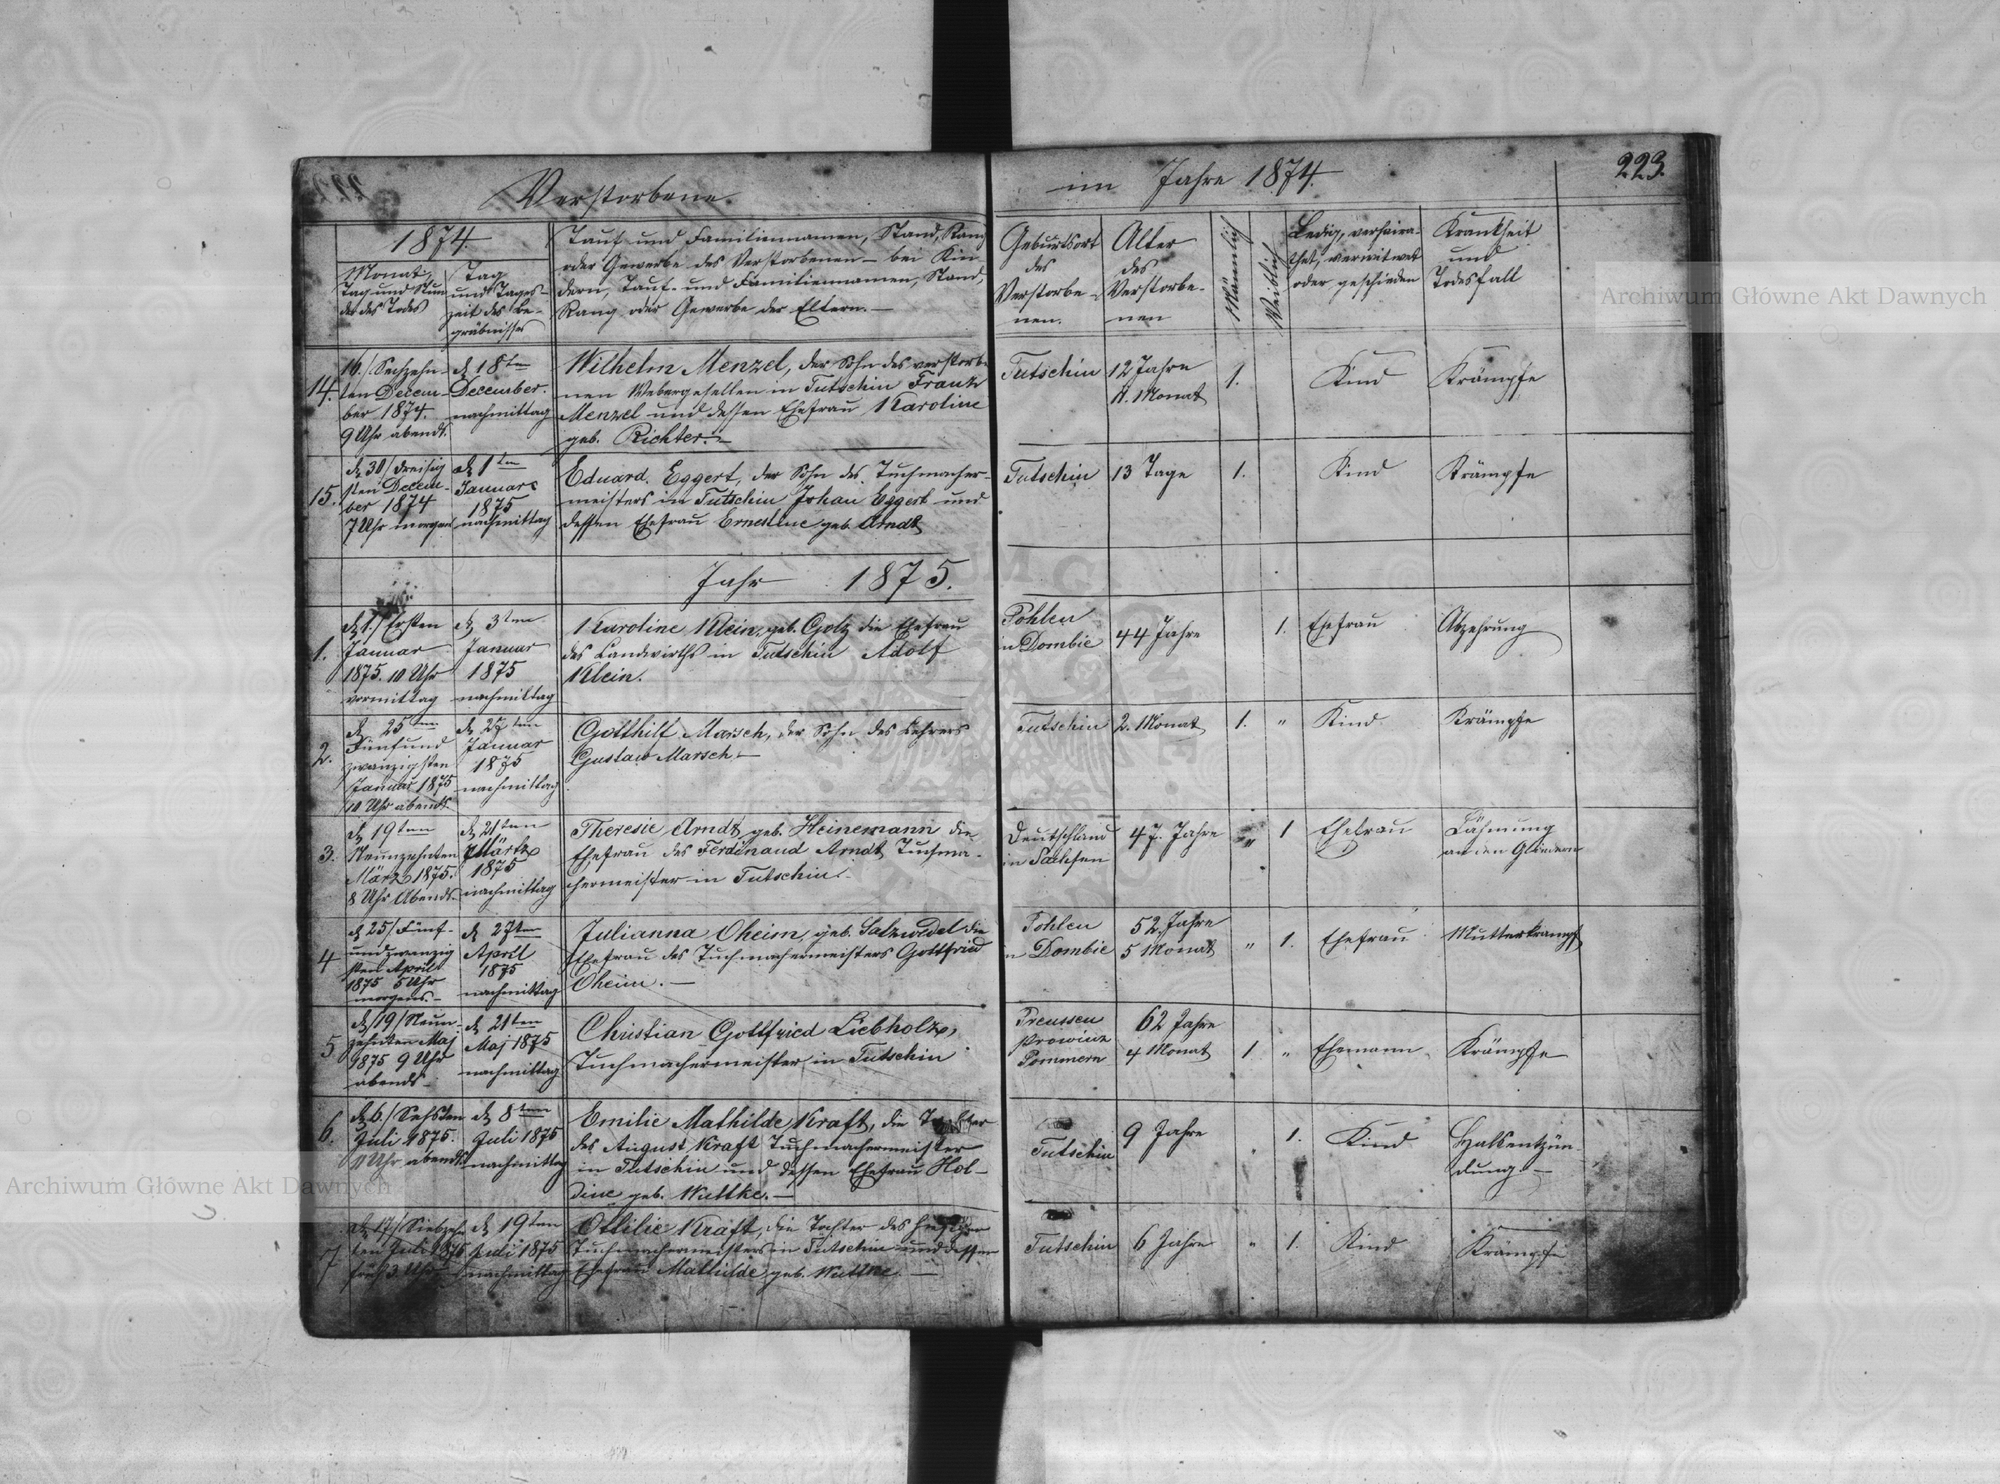 Verstorbene im Jahre 1874.
223.
1874.
Monat, Tag und Stunde des Todes
Tag und Tageszeit des Begräbnisses
Tauf- und Familiennamen, Stand, Rang
oder Gewerbe des Verstorbenen – bei Kin
dern, Tauf- und Familiennamen, Stand,
Rang oder Gewerbe der Eltern. –
Geburtsort
des
Verstorbe-
nen.
Alter
des
Verstorbe-
nen
Männlich
Weiblich
Ledig, verheira-
thet, verwitwet
oder geschieden
Krankheit
und
Todesfall
14.
16./ Sechzehn-
ten Decem-
ber 1874.
9 Uhr abends.
d. 18ten
December.
nachmittag
Wilhelm Menzel, der Sohn des verstorbe
nen Webergesellen in Tutschin Frantz
Menzel und dessen Ehefrau Karoline
geb. Richter. –
Tutschin
12 Jahre
Monat
1.
Kind
Krämpfe
15.
d. 30/ dreisig
sten Decem-
ber 1874
7 Uhr morgens
d. 1ten
Januar
1875
nachmittag
Eduard Eggert, der Sohn des Tuchmacher-
meisters in Tutschin Johan Eggert und
dessen Ehefrau Ernestine geb. Arndt
Tutschin
13 Tage
1.
Kind
Krämpfe
Jahr 1875.
1.
d. 1./ Ersten
Januar
1875. 10 Uhr
vormittag
d. 3ten
Januar
1875
nachmittag
Karoline Klein, geb. Golz die Ehefrau
des Landwirths in Tutschin Adolf
Klein.
Pohlen
in Dombie
44 Jahre
1.
Ehefrau
Abzehrung
2.
d. 25ten
Fünfund
zwanzigsten
Januar 1875
10 Uhr abends
d. 27ten
Januar
1875
nachmittag
Gotthilf Marsch, der Sohn des Lehrers
Gustaw Marsch. –
Tutschin
2. Monat
1. "
Kind
Krämpfe
3.
d. 19ten
Neunzehnten
März 1875.
8 Uhr Abends.
d. 21ten
März
1875
nachmittag
Theresie Arndt, geb. Heinemann die
Ehefrau des Ferdinand Arndt, Tuchma-
chermeister in Tutschin. –
Deutschland
in Sachsen
47. Jahre
" 1
Ehefrau
Lähmung
an den Gliedern
4
d. 25/ Fünf-
undzwanzig
sten April
1875 5 Uhr
morgens. –
d. 27ten
April
1875
nachmittag
Julianna Oheim, geb. Salzwedel die
Ehefrau des Tuchmachermeisters Gottfried
Oheim. –
Pohlen
in Dombie
52. Jahre
5 Monat
" 1.
Ehefrau
Mutterkrampf
5
d. 19/ Neun-
zehnten Maj
1875 9 Uhr
abends –
d. 21ten
Maj 1875
nachmittag
Christian Gottfried Liebholz,
Tuchmachermeister in Tutschin
Preussen
Prowinz
Pommern
62 Jahre
4 Monat
1 "
Ehemann
Krämpfe
6.
d. 6./ Sechsten
Juli 1875.
Uhr abends
d. 8ten
Juli 1875
nachmittag
Emilie Mathilde Kraft, die Tochter
des August Kraft Tuchmachermeister
in Tutschin und dessen Ehefrau Hol-
dine geb. Wuttke. –
Tutschin
9 Jahre
1.
Kind
Halsentzün-
dung. –
7
d. 17/ Siebzehn
ten Juli 1875
früh 3 Uhr
d. 19ten
Juli 1875
nachmittag
Ottilie Kraft, die Tochter des hiesigen
Tuchmachermeisters in Tutschin und dessen
Ehefrau Mathilde geb. Wuttke. –
Tutschin
6 Jahre
" 1.
Kind
Krämpfe
Archiwum Główne Akt Dawnych
Archiwum Główne Akt Dawnych